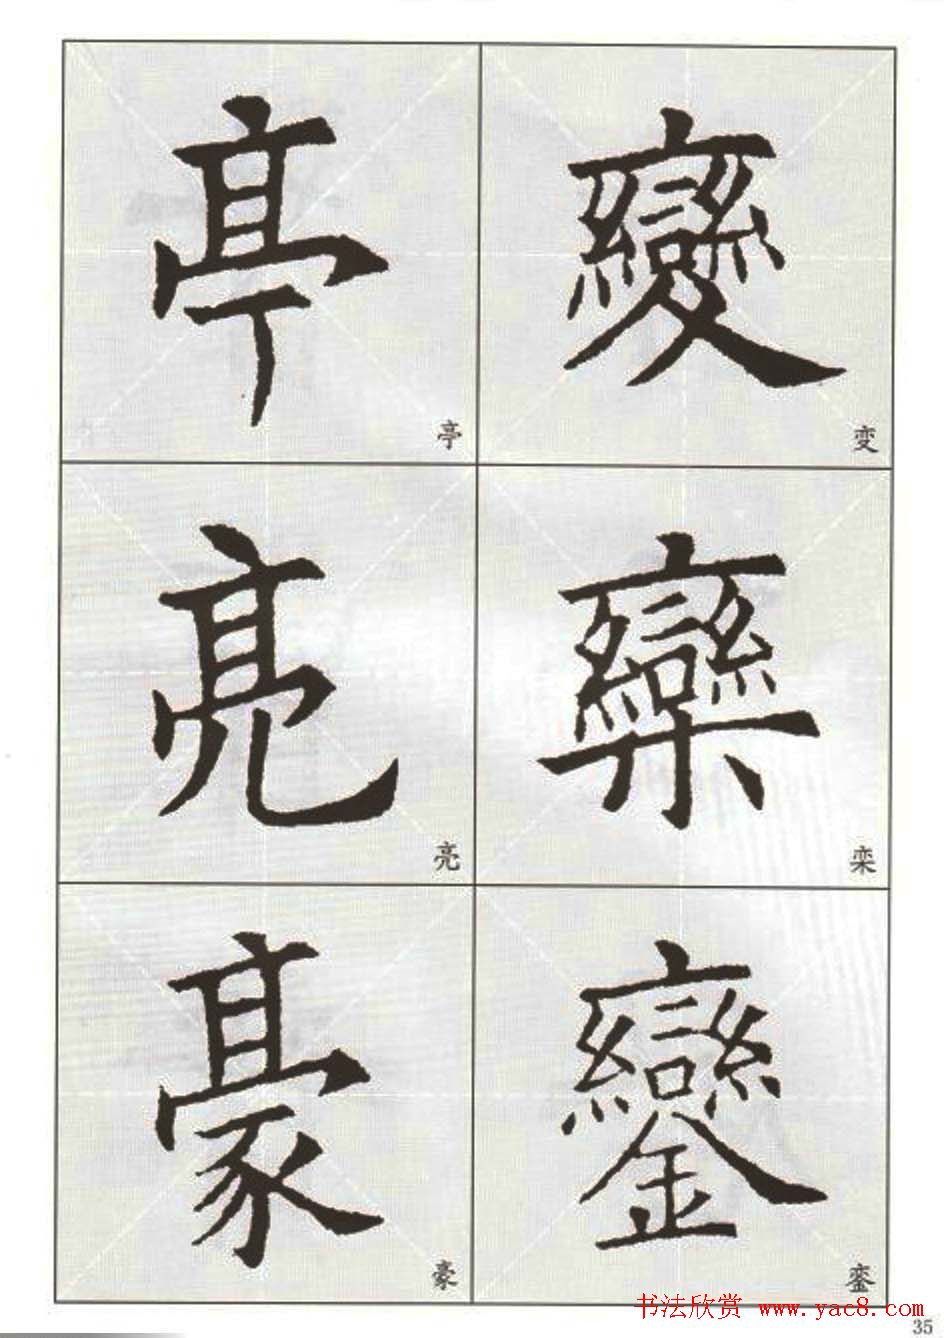 亭 變
亭 变
亮 欒
亮 栾
豪 鑾
豪 銮
书法欣赏 www.yac8.com
35